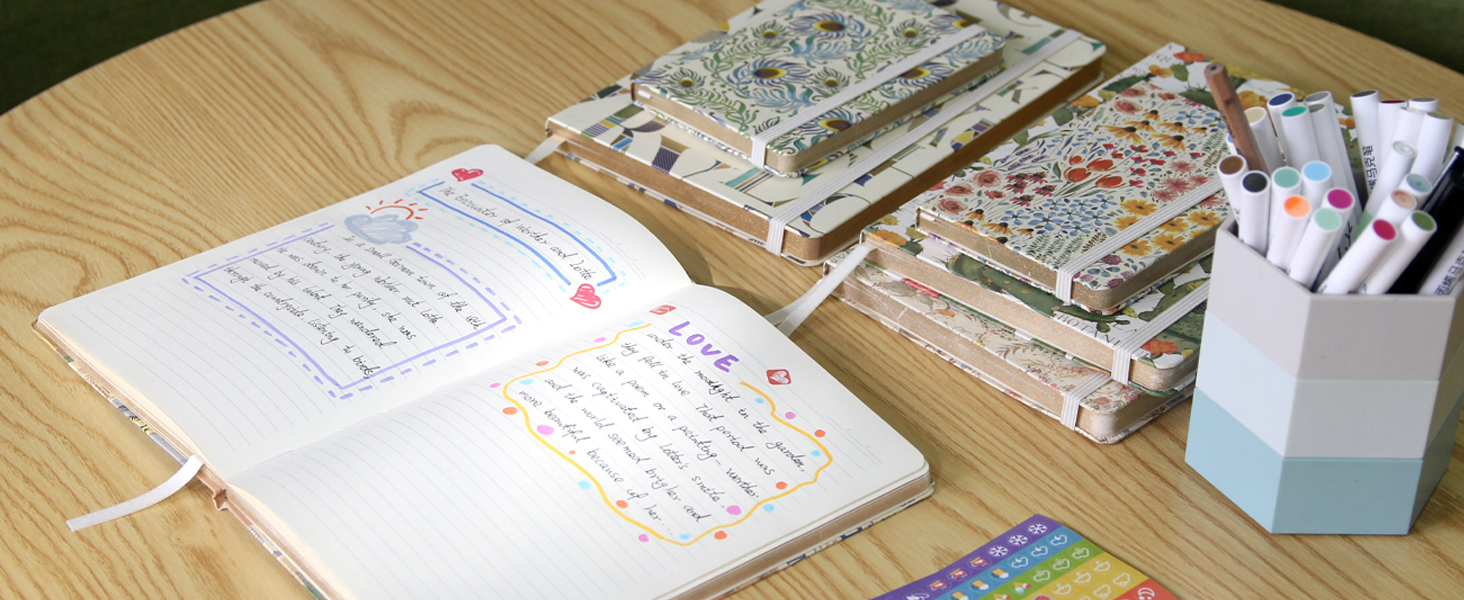 The Encounter of Werther and Lotte
In a small German town of the 18th
century, the young Werther met Lotte
He was drawn to her purity, she was
moved by his talent. They wandered
through the countryside, listening to birds
LOVE
Under the moonlight in the garden,
they fell in love. That period was
like a poem or a painting - werther
was captivated by Lotte's smile,
and the world seemed brighter and
more beautiful because of her...